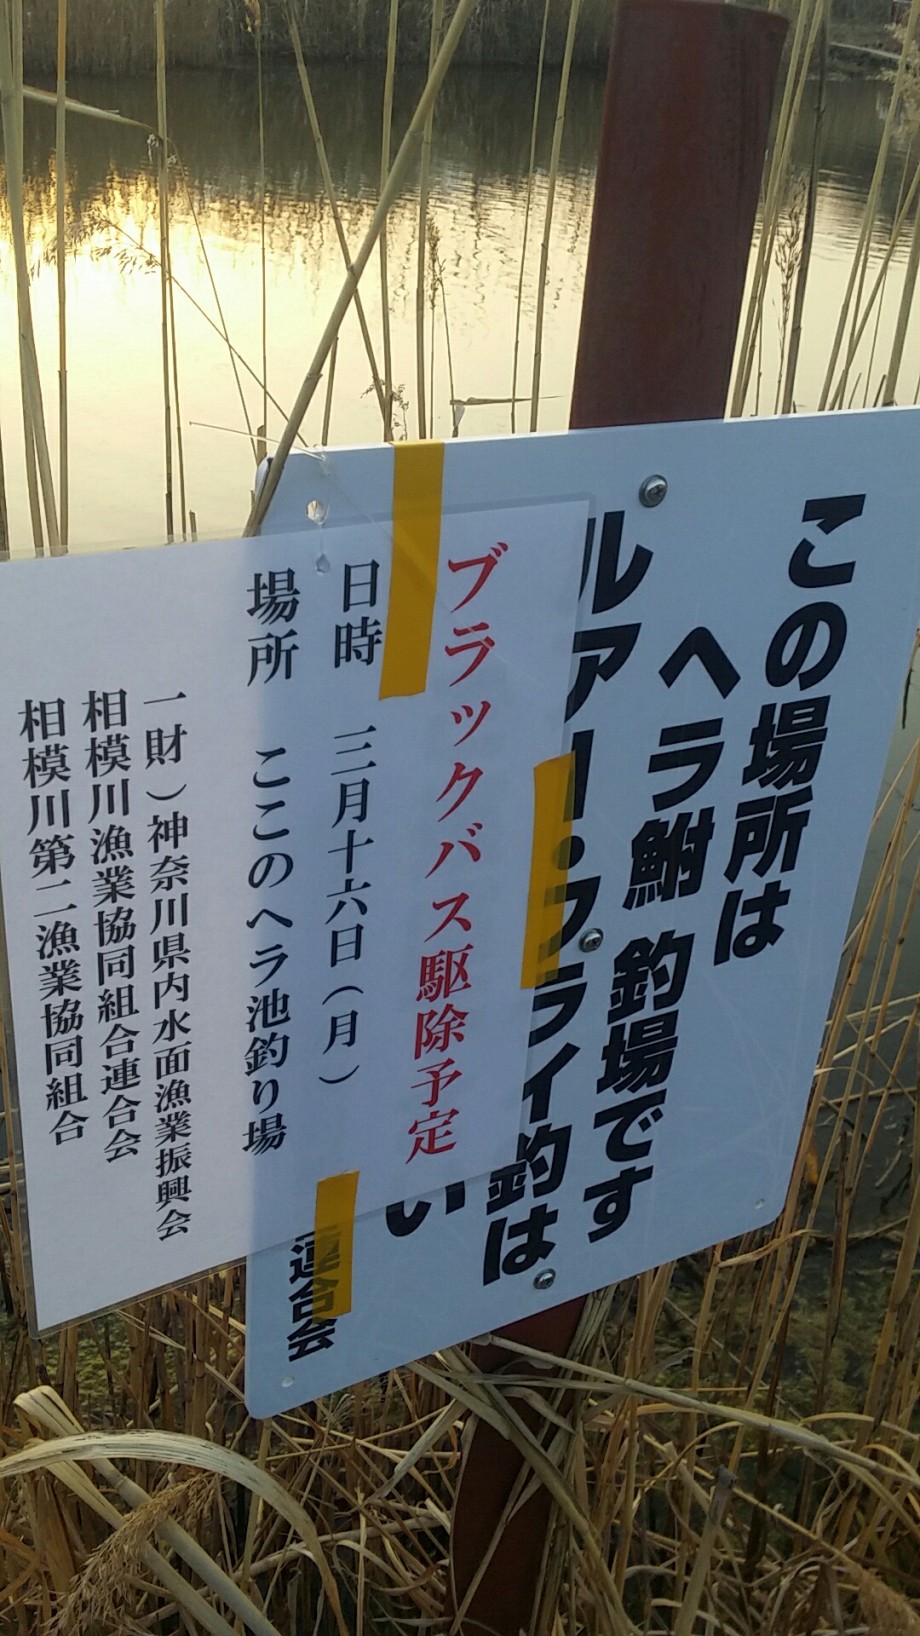 この場所は
ヘラ鮒 釣場です
ルアー・フライ釣は
い
連合会
ブラックバス駆除予定
日時 三月十六日（月）
場所 ここのヘラ池釣り場
一財）神奈川県内水面漁業振興会
相模川漁業協同組合連合会
相模川第二漁業協同組合